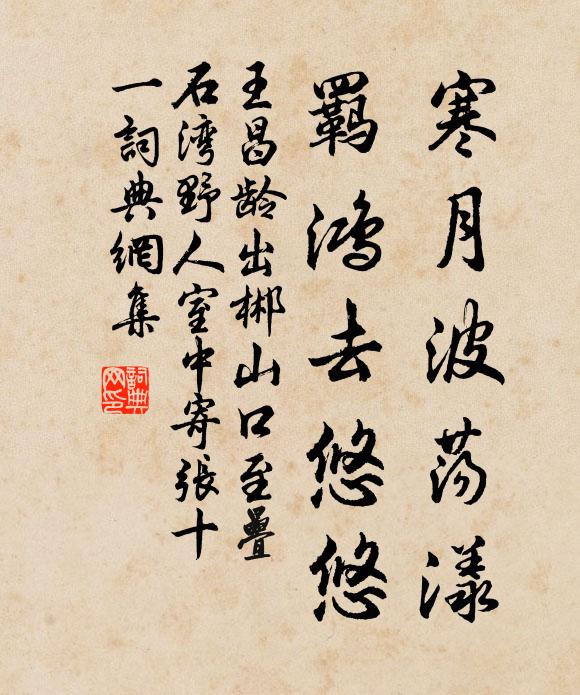 寒月波荡漾
羁鸿去悠悠
王昌龄出郴山口至疊
石湾野人室中寄張十
一詞典網集
詞典网印